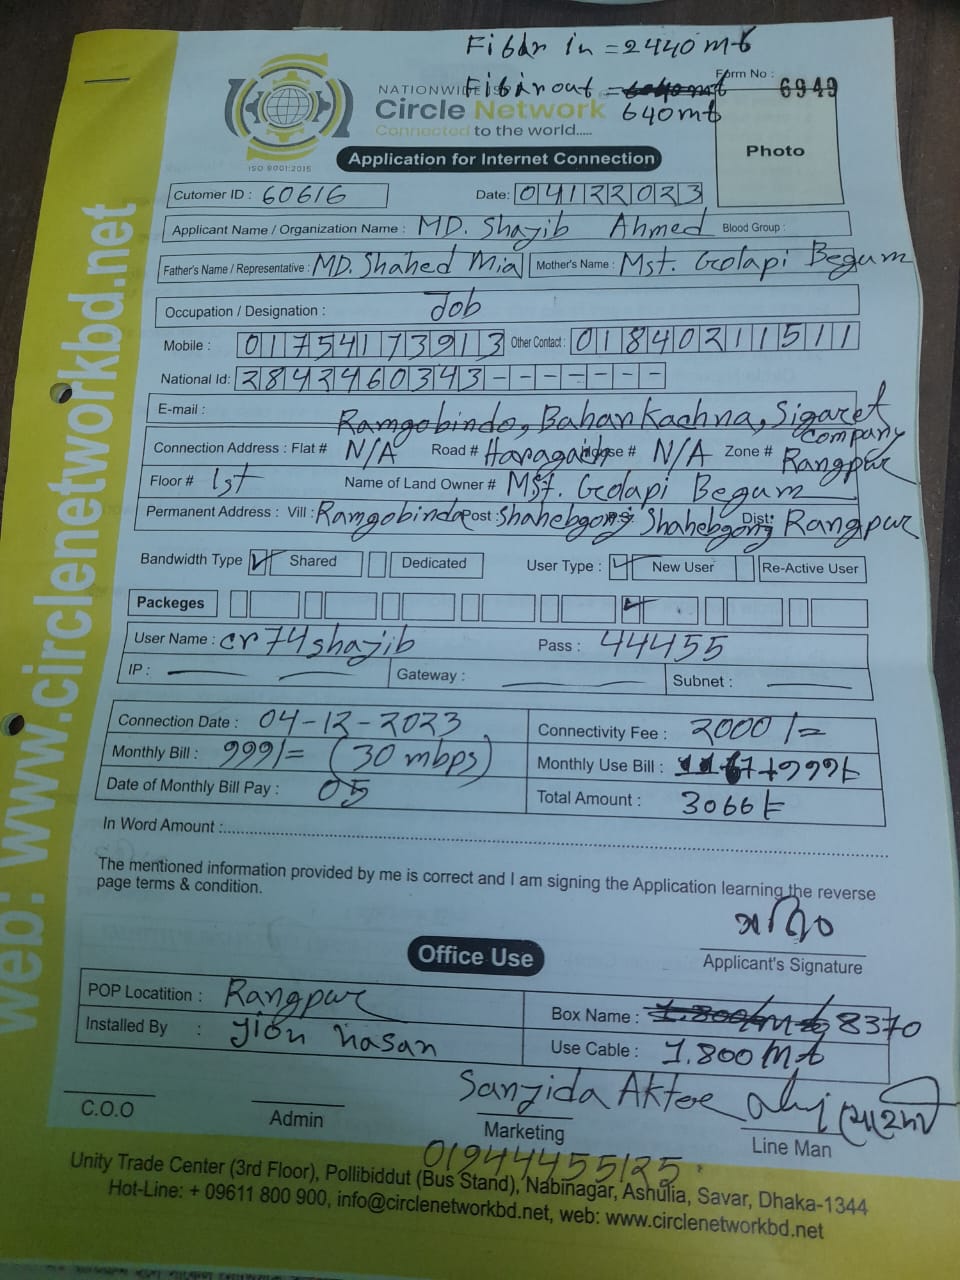 Fibar in = 2440 mt
NATIONWIDE ISP
Fibar out =
640 mt
Form No : 6949
Circle Network
Connected to the world.....
ISO 9001:2015
Photo
Application for Internet Connection
Cutomer ID : 60616 Date: 04122023
Applicant Name / Organization Name : MD. Shajib Ahmed Blood Group :
Father's Name / Representative : MD. Shahed Mia Mother's Name : Mst. Golapi Begum
Occupation / Designation : Job
Mobile : 01754173913 Other Contact : 01840211511
National Id: 2842460343-------
E-mail :
Ramgobindo, Bahar Kachna, Sigaret Company
Connection Address : Flat # N/A Road # Haragach House # N/A Zone # Rangpur
Floor # 1st Name of Land Owner # Mst. Golapi Begum
Permanent Address : Vill : Ramgobindo Post : Shahebgong P.S: Shahebgong Dist: Rangpur
Bandwidth Type ✓ Shared Dedicated User Type : ✓ New User Re-Active User
Packeges ✓
User Name : cr74shajib Pass : 44455
IP : Gateway : Subnet :
Connection Date : 04-12-2023 Connectivity Fee : 2000/=
Monthly Bill : 999/= (30 mbps) Monthly Use Bill : +999৳
Date of Monthly Bill Pay : 05 Total Amount : 3066৳
In Word Amount :
The mentioned information provided by me is correct and I am signing the Application learning the reverse
page terms & condition.
Applicant's Signature
Office Use
POP Locatition : Rangpur Box Name : 8370
Installed By : Jion hasan Use Cable : 1.800 mt
Sanjida Akter
C.O.O Admin Marketing Line Man
01944455125
Unity Trade Center (3rd Floor), Pollibiddut (Bus Stand), Nabinagar, Ashulia, Savar, Dhaka-1344
Hot-Line: + 09611 800 900, info@circlenetworkbd.net, web: www.circlenetworkbd.net
web: www.circlenetworkbd.net